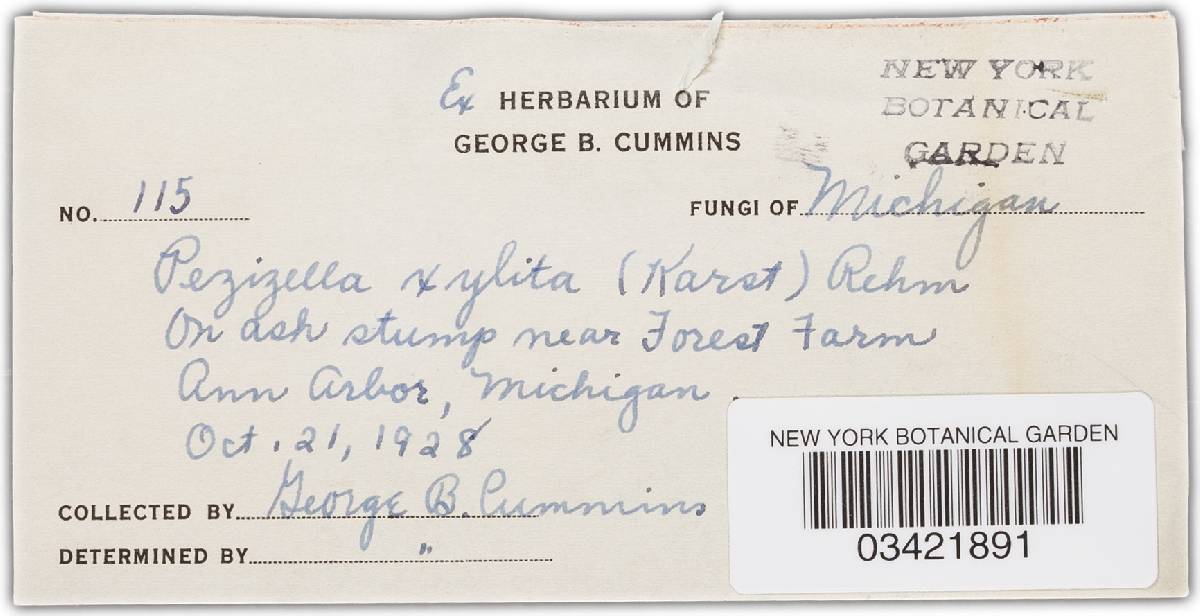 Ex HERBARIUM OF
GEORGE B. CUMMINS
NEW YORK
BOTANICAL
GARDEN
NO. 115
FUNGI OF Michigan
Pezizella xylita (Karst) Rehm
On ash stump near Forest Farm
Ann Arbor, Michigan.
Oct. 21, 1928
COLLECTED BY George B. Cummins
DETERMINED BY "
NEW YORK BOTANICAL GARDEN
03421891